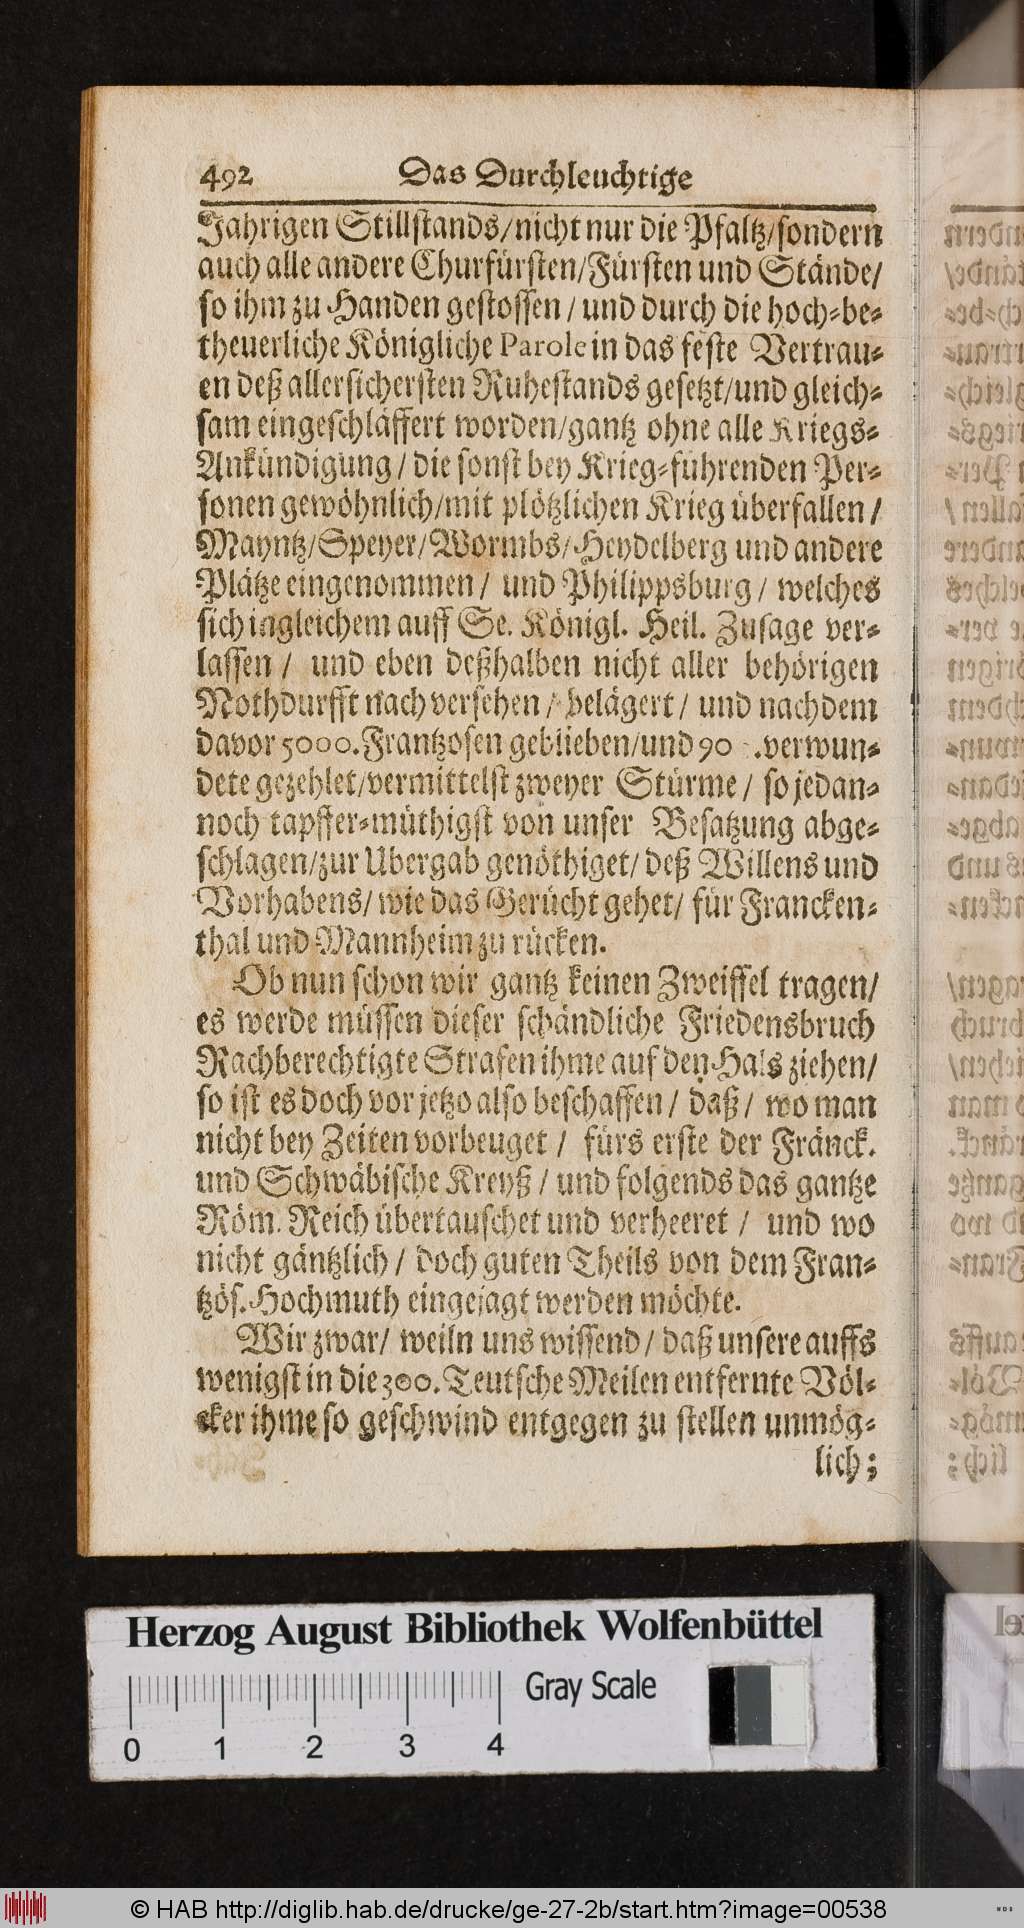 492 Das Durchleuchtige
Jahrigen Stillstands/nicht nur die Pfaltz/sondern
auch alle andere Churfürsten/Fürsten und Stände/
so ihm zu Handen gestossen / und durch die hoch-be-
theuerliche Königliche Parole in das feste Vertrau-
en deß allersichersten Ruhestands gesetzt/und gleich-
sam eingeschläffert worden/gantz ohne alle Kriegs-
Ankündigung / die sonst bey Krieg-führenden Per-
sonen gewöhnlich/mit plötzlichen Krieg überfallen /
Mayntz/Speyer/Wormbs/Heydelberg und andere
Plätze eingenommen / und Philippsburg / welches
sich ingleichem auff Se. Königl. Heil. Zusage ver-
lassen / und eben deßhalben nicht aller behörigen
Nothdurfft nach versehen / belägert / und nachdem
davor 5000. Frantzosen geblieben/und 90 .verwun-
dete gezehlet/vermittelst zweyer Stürme / so jedan-
noch tapffer-müthigst von unser Besatzung abge-
schlagen/zur Ubergab genöthiget/ deß Willens und
Vorhabens/ wie das Gerücht gehet/ für Francken-
thal und Mannheim zu rücken.
Ob nun schon wir gantz keinen Zweiffel tragen/
es werde müssen dieser schändliche Friedensbruch
Rachberechtigte Strafen ihme auf den Hals ziehen/
so ist es doch vor jetzo also beschaffen / daß / wo man
nicht bey Zeiten vorbeuget / fürs erste der Fränck.
und Schwäbische Kreyß / und folgends das gantze
Röm. Reich übertauschet und verheeret / und wo
nicht gäntzlich / doch guten Theils von dem Fran-
tzös. Hochmuth eingejagt werden möchte.
Wir zwar/ weiln uns wissend / daß unsere auffs
wenigst in die 300. Teutsche Meilen entfernte Völ-
cker ihme so geschwind entgegen zu stellen unmög-
lich;
Herzog August Bibliothek Wolfenbüttel
Gray Scale
0 1 2 3 4
© HAB http://diglib.hab.de/drucke/ge-27-2b/start.htm?image=00538